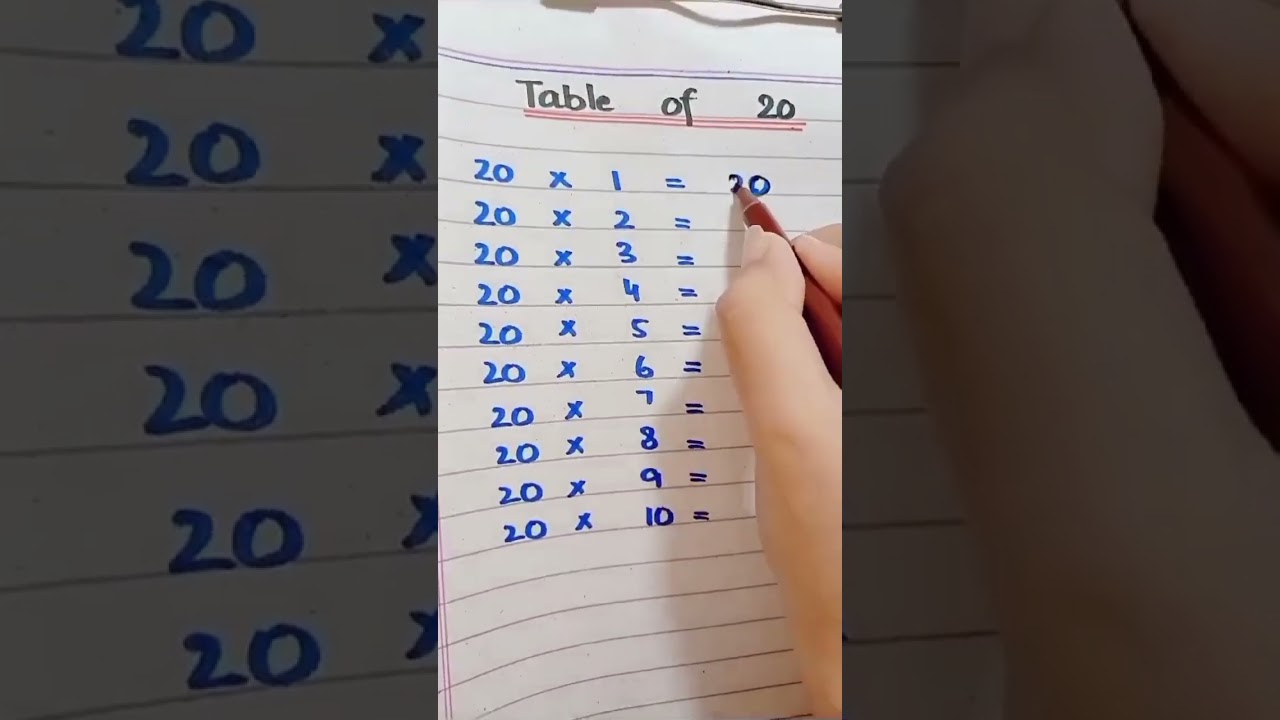 Table of 20
20 x 1 = 20
20 x 2 =
20 x 3 =
20 x 4 =
20 x 5 =
20 x 6 =
20 x 7 =
20 x 8 =
20 x 9 =
20 x 10 =